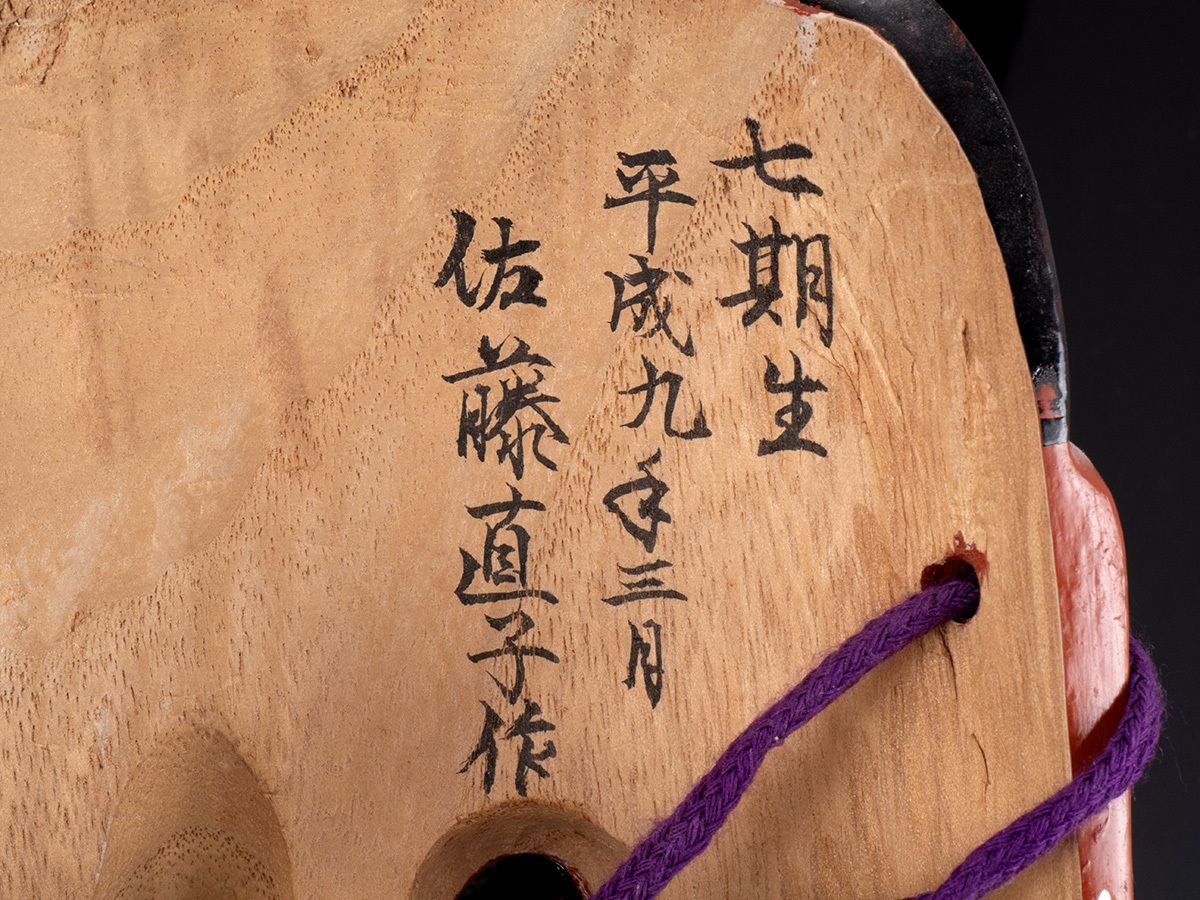 七期生
平成九年三月
佐藤直子作